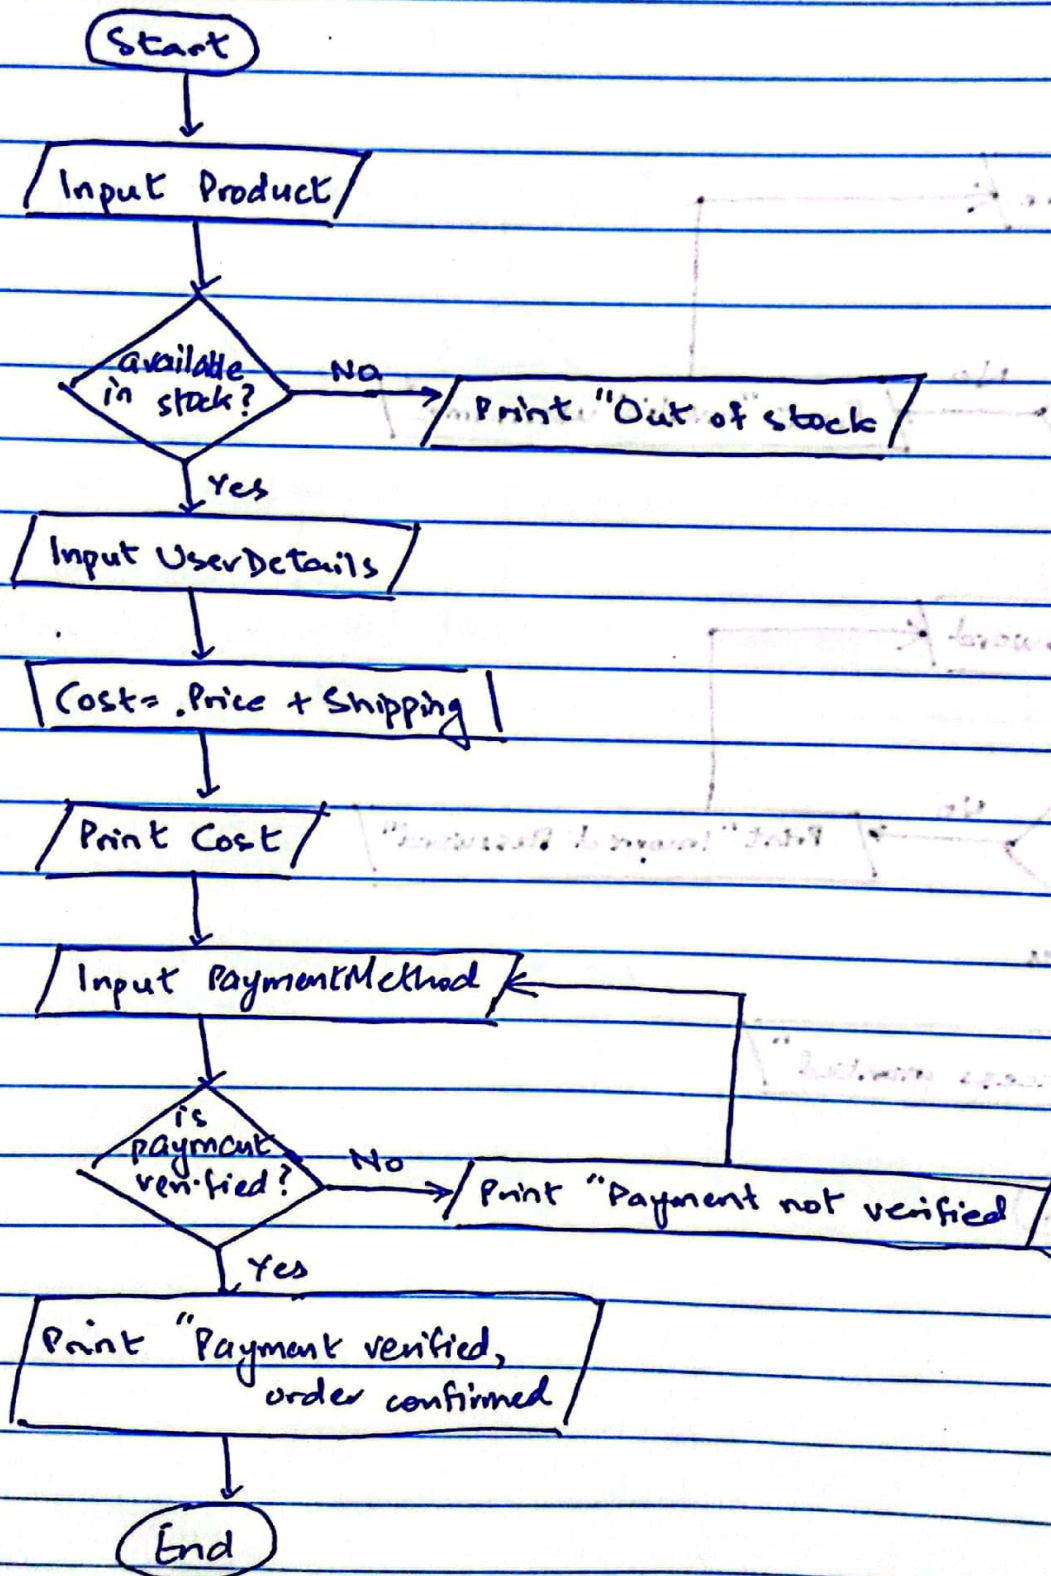 Start
Input Product
available
in stock?
No
Print "Out of stock
Yes
Input UserDetails
Cost= .Price + Shipping
Print Cost
Input PaymentMethod
is
payment
verified?
No
Print "Payment not verified
Yes
Print "Payment verified,
order confirmed
End